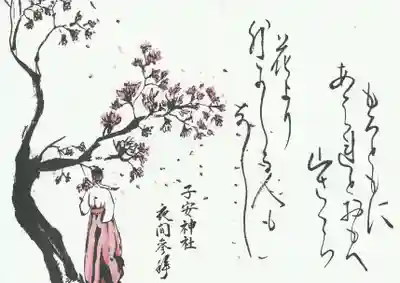 もろともに
あはれとおもへ
山さくら
花より
外にしる人も
なし
子安神社
夜間参拝